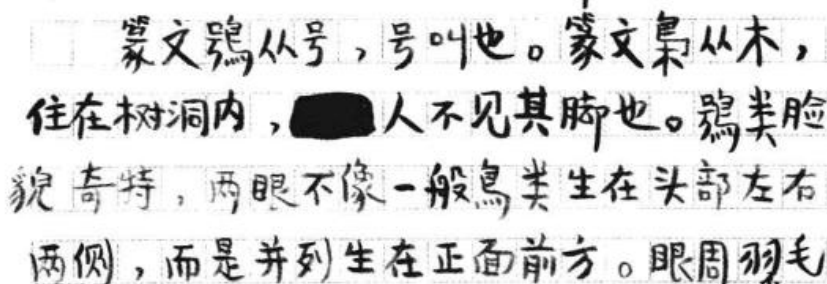 篆文鴞从号，号叫也。篆文梟从木，
住在树洞内，人不见其脚也。鴞类脸
貌奇特，两眼不像一般鳥类生在头部左右
两侧，而是并列生在正面前方。眼周羽毛